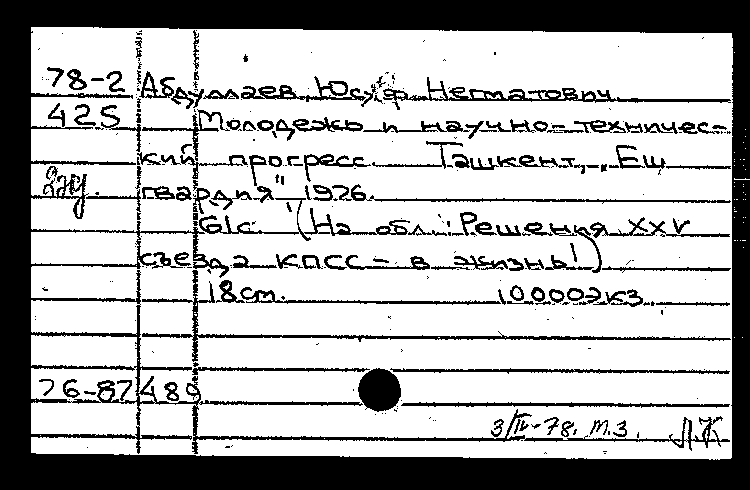 78-2 Абдуллаев, Юсуф Негматович.
425 Молодежь и научно-техничес-
кий прогресс. Ташкент, „Еш
гвардия", 1976.
61с. (На обл.: Решения XXV
съезда КПСС - в жизнь!)
18см. 10000экз.
76-87489
3/IV-78. т.з. Л.К